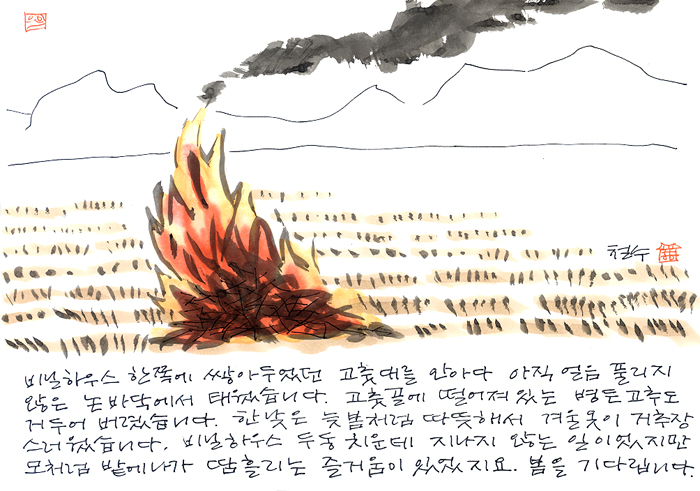 철수
비닐하우스 한쪽에 쌓아두었던 고춧대를 안아다 아직 얼음 풀리지
않은 논바닥에서 태웠습니다. 고춧골에 떨어져있는 병든고추도
거두어 버렸습니다. 한낮은 늦봄처럼 따뜻해서 겨울옷이 거추장
스러웠습니다. 비닐하우스 두동 치운데 지나지 않는 일이었지만
모처럼 밭에나가 땀흘리는 즐거움이 있었지요. 봄을 기다립니다.